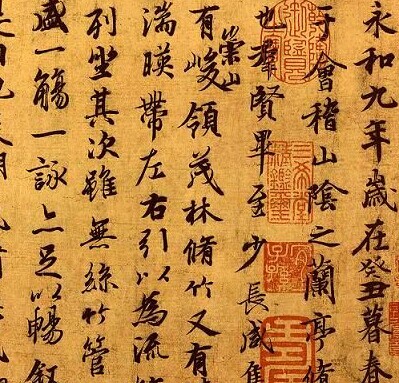 永和九年歲在癸丑暮春
于會稽山陰之蘭亭脩
也羣賢畢至少長咸
有崇山峻領茂林脩竹又有
湍暎帶左右引以為流
列坐其次雖無絲竹管
盛一觴一詠亦足以暢敘